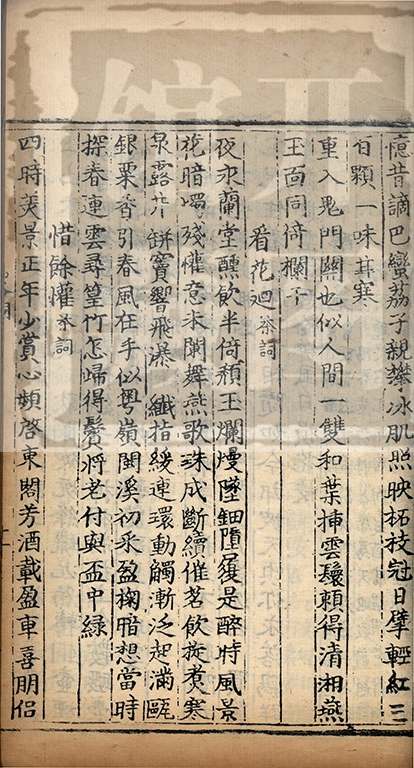 憶昔謫巴蠻荔子親攀冰肌照映柘枝冠日擘輕紅三
百顆一味甘寒
重入鬼門關也似人間一雙和葉揷雲鬟賴得清湘燕
玉面同倚欄干
看花廻茶詞
夜永蘭堂醺飲半倚頹玉爛熳墜鈿墮履是醉時風景
花暗燭殘懽意未闌舞燕歌珠成斷續催茗飲旋煮寒
泉露井缾竇響飛瀑 纖指緩連環動觸漸泛起滿甌
銀粟香引春風在手似粵嶺閩溪初采盈掬暗想當時
探春連雲尋篁竹怎歸得鬢將老付與盃中綠
惜餘懽茶詞
四時美景正年少賞心頻啓東閣芳酒載盈車喜朋侶